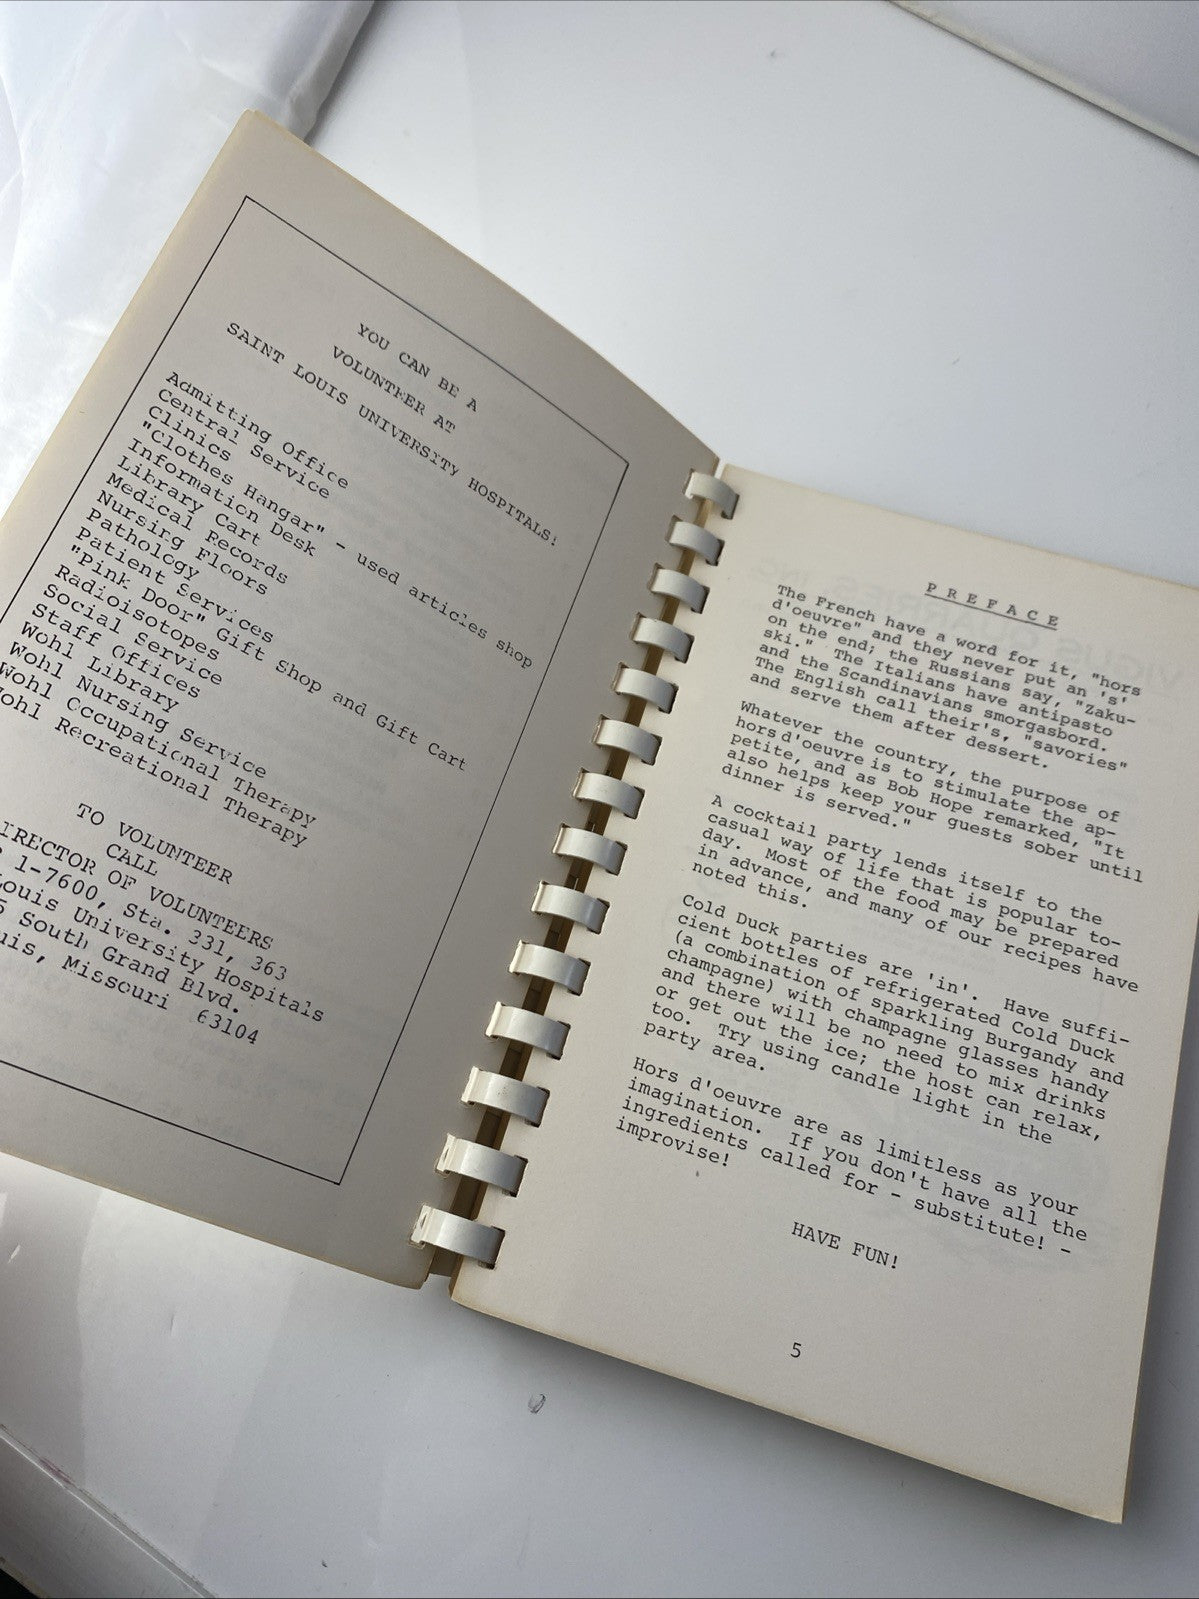 YOU CAN BE A
VOLUNTEER AT
SAINT LOUIS UNIVERSITY HOSPITALS!
Admitting Office
Central Service
Clinics
"Clothes Hangar" - used articles shop
Information Desk
Library Cart
Medical Records
Nursing Floors
Pathology
Patient Services
"Pink Door" Gift Shop and Gift Cart
Radioisotopes
Social Service
Staff Offices
Wohl Library
Wohl Nursing Service
Wohl Occupational Therapy
Wohl Recreational Therapy
TO VOLUNTEER
CALL
DIRECTOR OF VOLUNTEERS
1-7600, Sta. 331, 363
Louis University Hospitals
5 South Grand Blvd.
uis, Missouri 63104
PREFACE
The French have a word for it, "hors
d'oeuvre" and they never put an 's'
on the end; the Russians say, "Zaku-
ski." The Italians have antipasto
and the Scandinavians smorgasbord.
The English call their's, "savories"
and serve them after dessert.
Whatever the country, the purpose of
hors d'oeuvre is to stimulate the ap-
petite, and as Bob Hope remarked, "It
also helps keep your guests sober until
dinner is served."
A cocktail party lends itself to the
casual way of life that is popular to-
day. Most of the food may be prepared
in advance, and many of our recipes have
noted this.
Cold Duck parties are 'in'. Have suffi-
cient bottles of refrigerated Cold Duck
(a combination of sparkling Burgandy and
champagne) with champagne glasses handy
and there will be no need to mix drinks
or get out the ice; the host can relax,
too. Try using candle light in the
party area.
Hors d'oeuvre are as limitless as your
imagination. If you don't have all the
ingredients called for - substitute! -
improvise!
HAVE FUN!
5